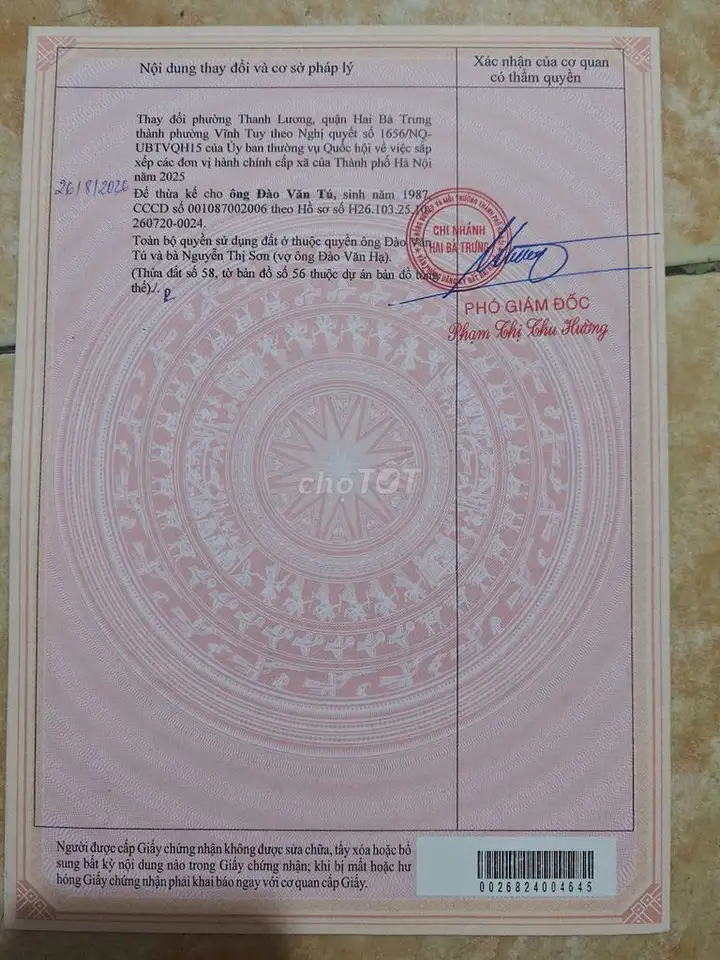 Nội dung thay đổi và cơ sở pháp lý
Xác nhận của cơ quan
có thẩm quyền
Thay đổi phường Thanh Lương, quận Hai Bà Trưng
thành phường Vĩnh Tuy theo Nghị quyết số 1656/NQ-
UBTVQH15 của Ủy ban thường vụ Quốc hội về việc sắp
xếp các đơn vị hành chính cấp xã của Thành phố Hà Nội
năm 2025
26/8/2026
Để thừa kế cho ông Đào Văn Tú, sinh năm 1987,
CCCD số 001087002006 theo Hồ sơ số H26.103.25.10-
260720-0024.
Toàn bộ quyền sử dụng đất ở thuộc quyền ông Đào Văn
Tú và bà Nguyễn Thị Sơn (vợ ông Đào Văn Hạ).
(Thửa đất số 58, tờ bản đồ số 56 thuộc dự án bản đồ tổng
thể)./.
CHI NHÁNH
HAI BÀ TRƯNG
PHÓ GIÁM ĐỐC
Phạm Thị Thu Hường
chợTỐT
Người được cấp Giấy chứng nhận không được sửa chữa, tẩy xóa hoặc bổ
sung bất kỳ nội dung nào trong Giấy chứng nhận; khi bị mất hoặc hư
hỏng Giấy chứng nhận phải khai báo ngay với cơ quan cấp Giấy.
0026824004645